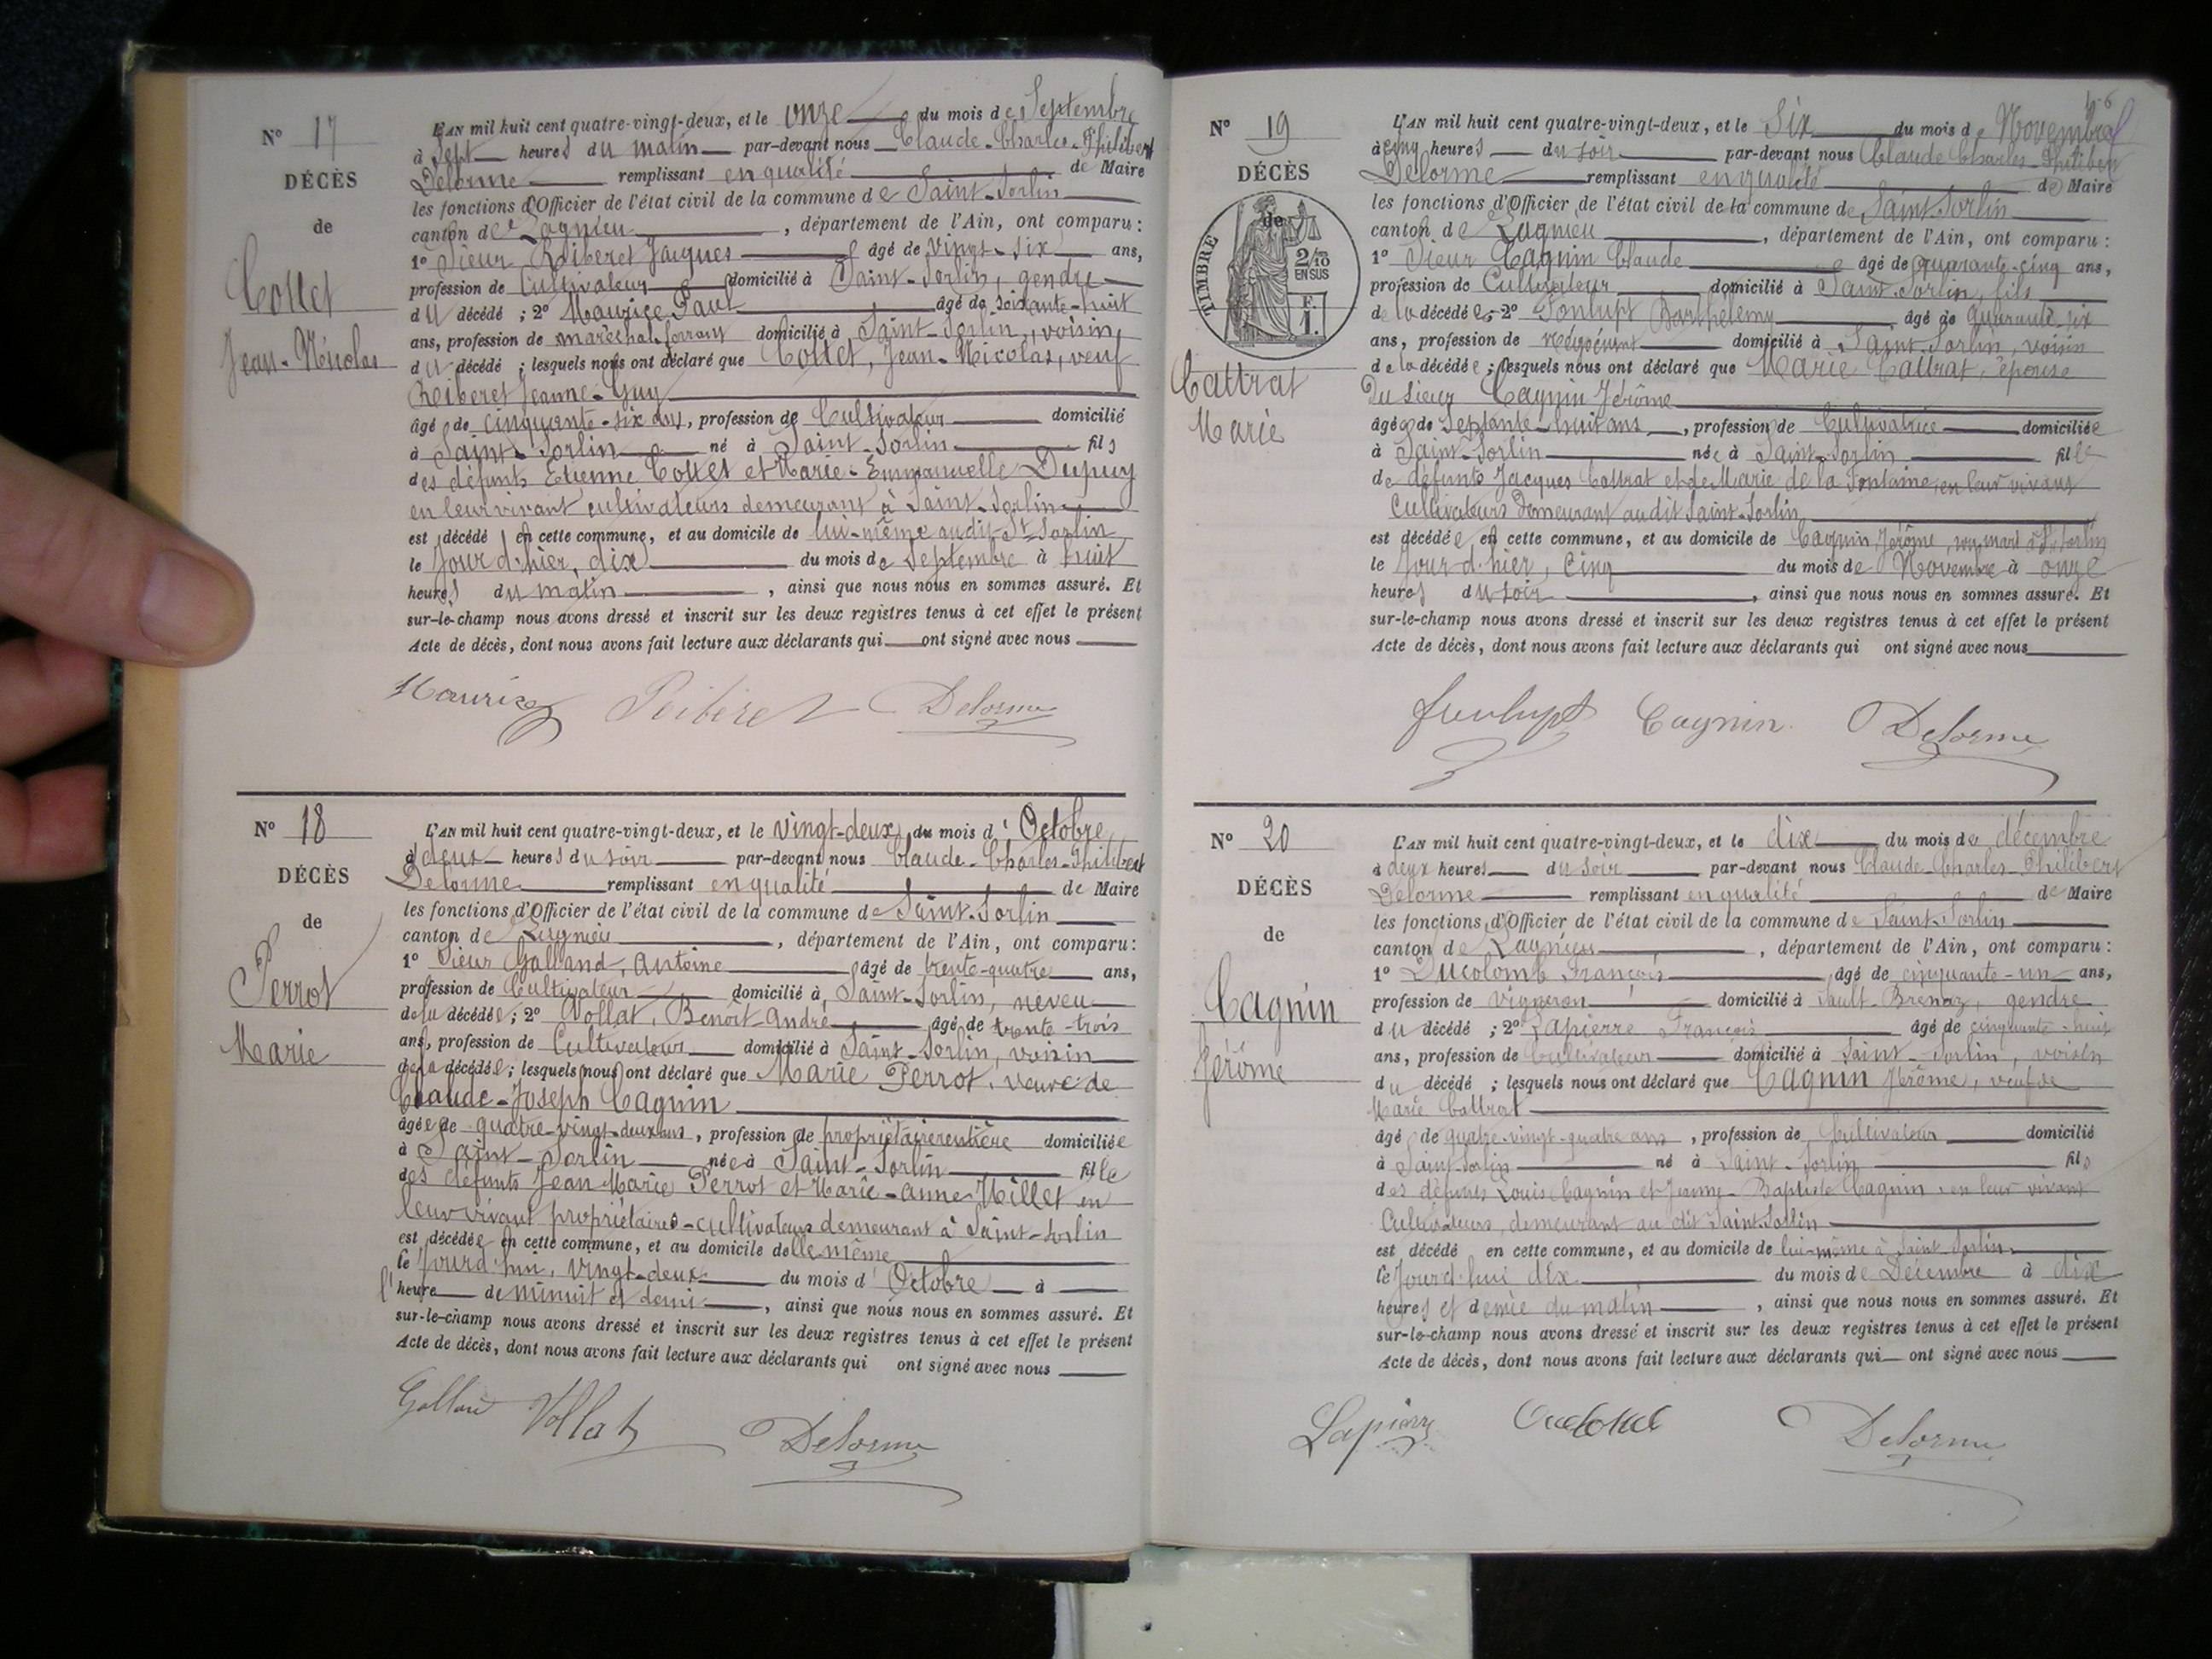 N° 17
DÉCÈS
de
Collet
Jean-Nicolas
L'AN mil huit cent quatre-vingt-deux, et le onze du mois de Septembre
à Sept heures du matin par-devant nous Claude-Charles-Philibert
Delorme remplissant en qualité de Maire
les fonctions d'Officier de l'état civil de la commune de Saint-Sorlin
canton de Lagnieu, département de l'Ain, ont comparu :
1° Sieur Reiberet Jacques âgé de vingt-six ans,
profession de Cultivateur domicilié à Saint-Sorlin, gendre
du décédé ; 2° Maurice Paul âgé de soixante-huit
ans, profession de maréchal-ferrant domicilié à Saint-Sorlin, voisin
du décédé ; lesquels nous ont déclaré que Collet, Jean-Nicolas, veuf
Reiberet Jeanne-Guy
âgé de cinquante-six ans, profession de Cultivateur domicilié
à Saint-Sorlin né à Saint-Sorlin fils
des défunts Etienne Collet et Marie-Emmanuelle Dupuy
en leur vivant cultivateurs demeurant à Saint-Sorlin
est décédé en cette commune, et au domicile de lui-même audit St Sorlin
le jour d'hier, dix du mois de Septembre à huit
heures du matin, ainsi que nous nous en sommes assuré. Et
sur-le-champ nous avons dressé et inscrit sur les deux registres tenus à cet effet le présent
Acte de décès, dont nous avons fait lecture aux déclarants qui ont signé avec nous
Maurice Reiberet Delorme
N° 18
DÉCÈS
de
Perrot
Marie
L'AN mil huit cent quatre-vingt-deux, et le vingt-deux du mois d'Octobre
à deux heures du soir par-devant nous Claude-Charles-Philibert
Delorme remplissant en qualité de Maire
les fonctions d'Officier de l'état civil de la commune de Saint-Sorlin
canton de Lagnieu, département de l'Ain, ont comparu :
1° Sieur Galland, Antoine âgé de trente-quatre ans,
profession de Cultivateur domicilié à Saint-Sorlin, neveu
de la décédée ; 2° Vollat, Benoît-André âgé de trente-trois
ans, profession de Cultivateur domicilié à Saint-Sorlin, voisin
de la décédée ; lesquels nous ont déclaré que Marie Perrot, veuve de
Claude-Joseph Cagnin
âgée de quatre-vingt-deux ans, profession de propriétaire rentière domiciliée
à Saint-Sorlin née à Saint-Sorlin fille
des défunts Jean Marie Perrot et Marie-Anne Millet en
leur vivant propriétaires-cultivateurs demeurant à Saint-Sorlin
est décédée en cette commune, et au domicile d'elle même
le jourd'hui, vingt-deux du mois d'Octobre à
l'heure de minuit et demi, ainsi que nous nous en sommes assuré. Et
sur-le-champ nous avons dressé et inscrit sur les deux registres tenus à cet effet le présent
Acte de décès, dont nous avons fait lecture aux déclarants qui ont signé avec nous
Galland Vollat Delorme
N° 19
DÉCÈS
de
TIMBRE
2/10
EN SUS
F.
1.
Cattrat
Marie
L'AN mil huit cent quatre-vingt-deux, et le Six du mois de Novembre
à cinq heures du soir par-devant nous Claude Charles-Philibert
Delorme remplissant en qualité de Maire
les fonctions d'Officier de l'état civil de la commune de Saint-Sorlin
canton de Lagnieu, département de l'Ain, ont comparu :
1° Sieur Cagnin Claude âgé de quarante-cinq ans,
profession de Cultivateur domicilié à Saint-Sorlin, fils
de la décédée ; 2° Fonlupt Barthélemy âgé de quarante-six
ans, profession de négociant domicilié à Saint-Sorlin, voisin
de la décédée ; lesquels nous ont déclaré que Marie Cattrat, épouse
du sieur Cagnin Jérôme
âgée de Septante-huit ans, profession de Cultivatrice domiciliée
à Saint-Sorlin née à Saint-Sorlin fille
de défunts Jacques Cattrat et de Marie de la Fontaine, en leur vivant
Cultivateurs demeurant audit Saint-Sorlin
est décédée en cette commune, et au domicile de Cagnin Jérôme, son mari à St Sorlin
le jour d'hier, Cinq du mois de Novembre à onze
heures du soir, ainsi que nous nous en sommes assuré. Et
sur-le-champ nous avons dressé et inscrit sur les deux registres tenus à cet effet le présent
Acte de décès, dont nous avons fait lecture aux déclarants qui ont signé avec nous
Fonlupt Cagnin Delorme
N° 20
DÉCÈS
de
Cagnin
Jérôme
L'AN mil huit cent quatre-vingt-deux, et le dix du mois de décembre
à deux heures du soir par-devant nous Claude-Charles-Philibert
Delorme remplissant en qualité de Maire
les fonctions d'Officier de l'état civil de la commune de Saint-Sorlin
canton de Lagnieu, département de l'Ain, ont comparu :
1° Ducolomb François âgé de cinquante-un ans,
profession de vigneron domicilié à Sault-Brenaz, gendre
du décédé ; 2° Lapierre François âgé de cinquante-huit
ans, profession de Cultivateur domicilié à Saint-Sorlin, voisin
du décédé ; lesquels nous ont déclaré que Cagnin Jérôme, veuf de
Marie Cattrat
âgé de quatre-vingt-quatre ans, profession de Cultivateur domicilié
à Saint-Sorlin né à Saint-Sorlin fils
des défunts Louis Cagnin et Jeanne-Baptiste Cagnin, en leur vivant
Cultivateurs, demeurant au dit Saint-Sorlin
est décédé en cette commune, et au domicile de lui-même à Saint-Sorlin
le jourd'hui dix du mois de Décembre à dix
heures et demie du matin, ainsi que nous nous en sommes assuré. Et
sur-le-champ nous avons dressé et inscrit sur les deux registres tenus à cet effet le présent
Acte de décès, dont nous avons fait lecture aux déclarants qui ont signé avec nous
Lapierre Delorme